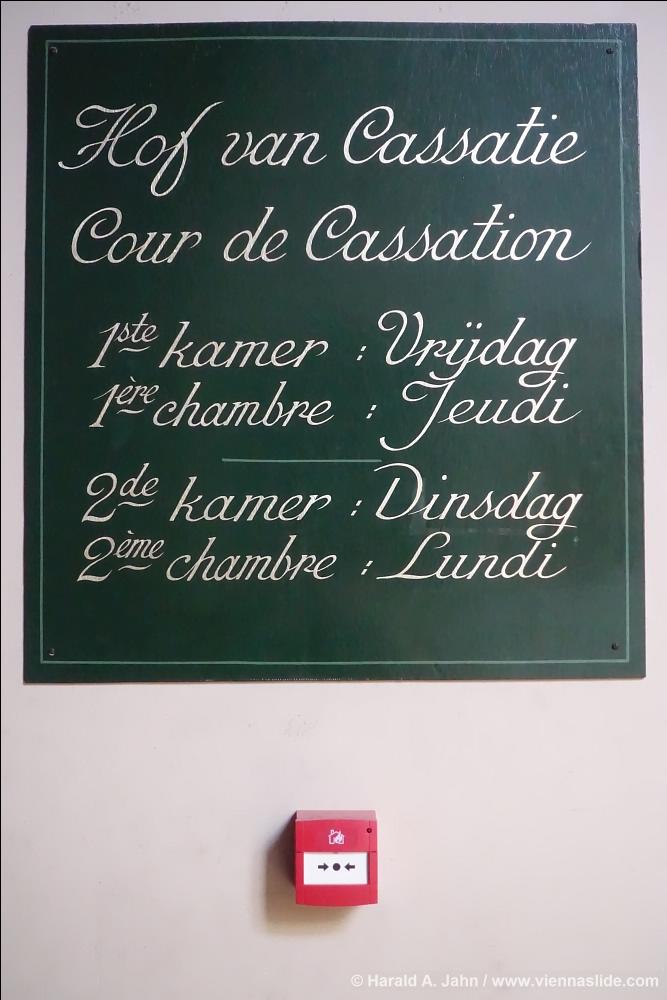 Hof van Cassatie
Cour de Cassation
1ste kamer : Vrijdag
1ère chambre : Jeudi
2de kamer : Dinsdag
2ème chambre : Lundi
© Harald A. Jahn / www.viennaslide.com